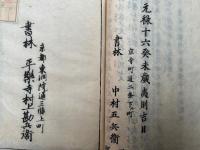 元禄十六癸未歳孟則吉日
書林
中村五兵衛
京都東洞院通三條上ル町
書林 平樂寺村上勘兵衛